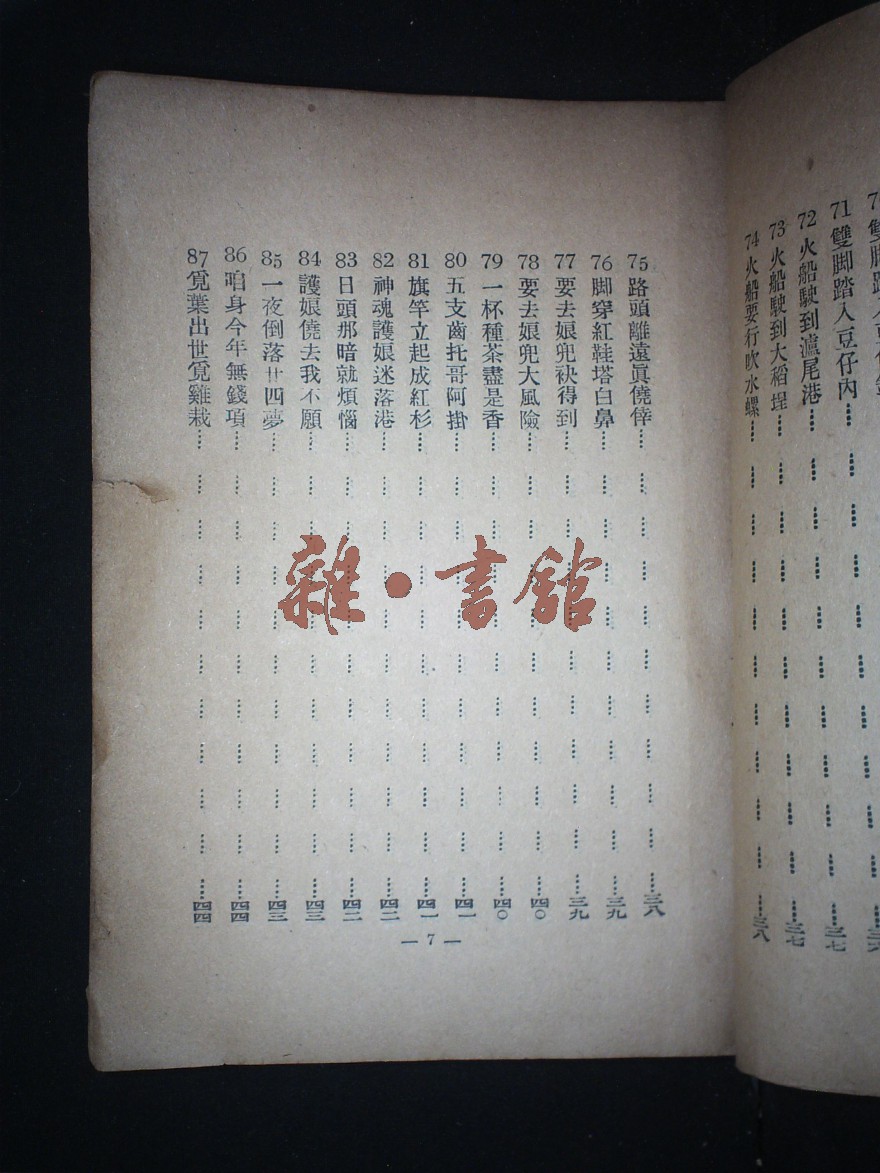 71 雙脚踏入豆仔內……三七
72 火船駛到滬尾港……三七
73 火船駛到大稻埕……三七
74 火船要行吹水螺……三八
75 路頭離遠眞僥倖……三八
76 脚穿紅鞋塔白鼻……三九
77 要去娘兜袂得到……三九
78 要去娘兜大風險……四〇
79 一杯種茶盡是香……四〇
80 五支齒托哥阿掛……四一
81 旗竿立起成紅杉……四一
82 神魂護娘迷落港……四二
83 日頭那暗就煩惱……四二
84 護娘僥去我不願……四三
85 一夜倒落廿四夢……四三
86 咱身今年無錢項……四四
87 莧葉出世莧雞栽……四四
— 7 —
雜·書館